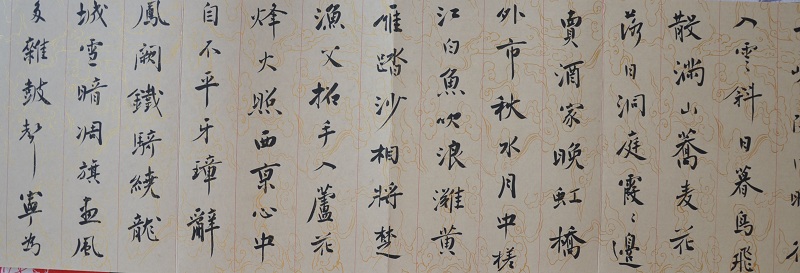 入雲斜日暮鳥飛
散滿山蕎麦花
落日洞庭霞〻邊
賣酒家晚虹橋
外市秋水月中槎
江白魚吹浪灘黄
雁踏沙相將楚
漁父招手入蘆花
烽火照西京心中
自不平牙璋辭
鳳闕鐵騎繞龍
城雪暗凋旗畫風
多雜鼓聲寧為